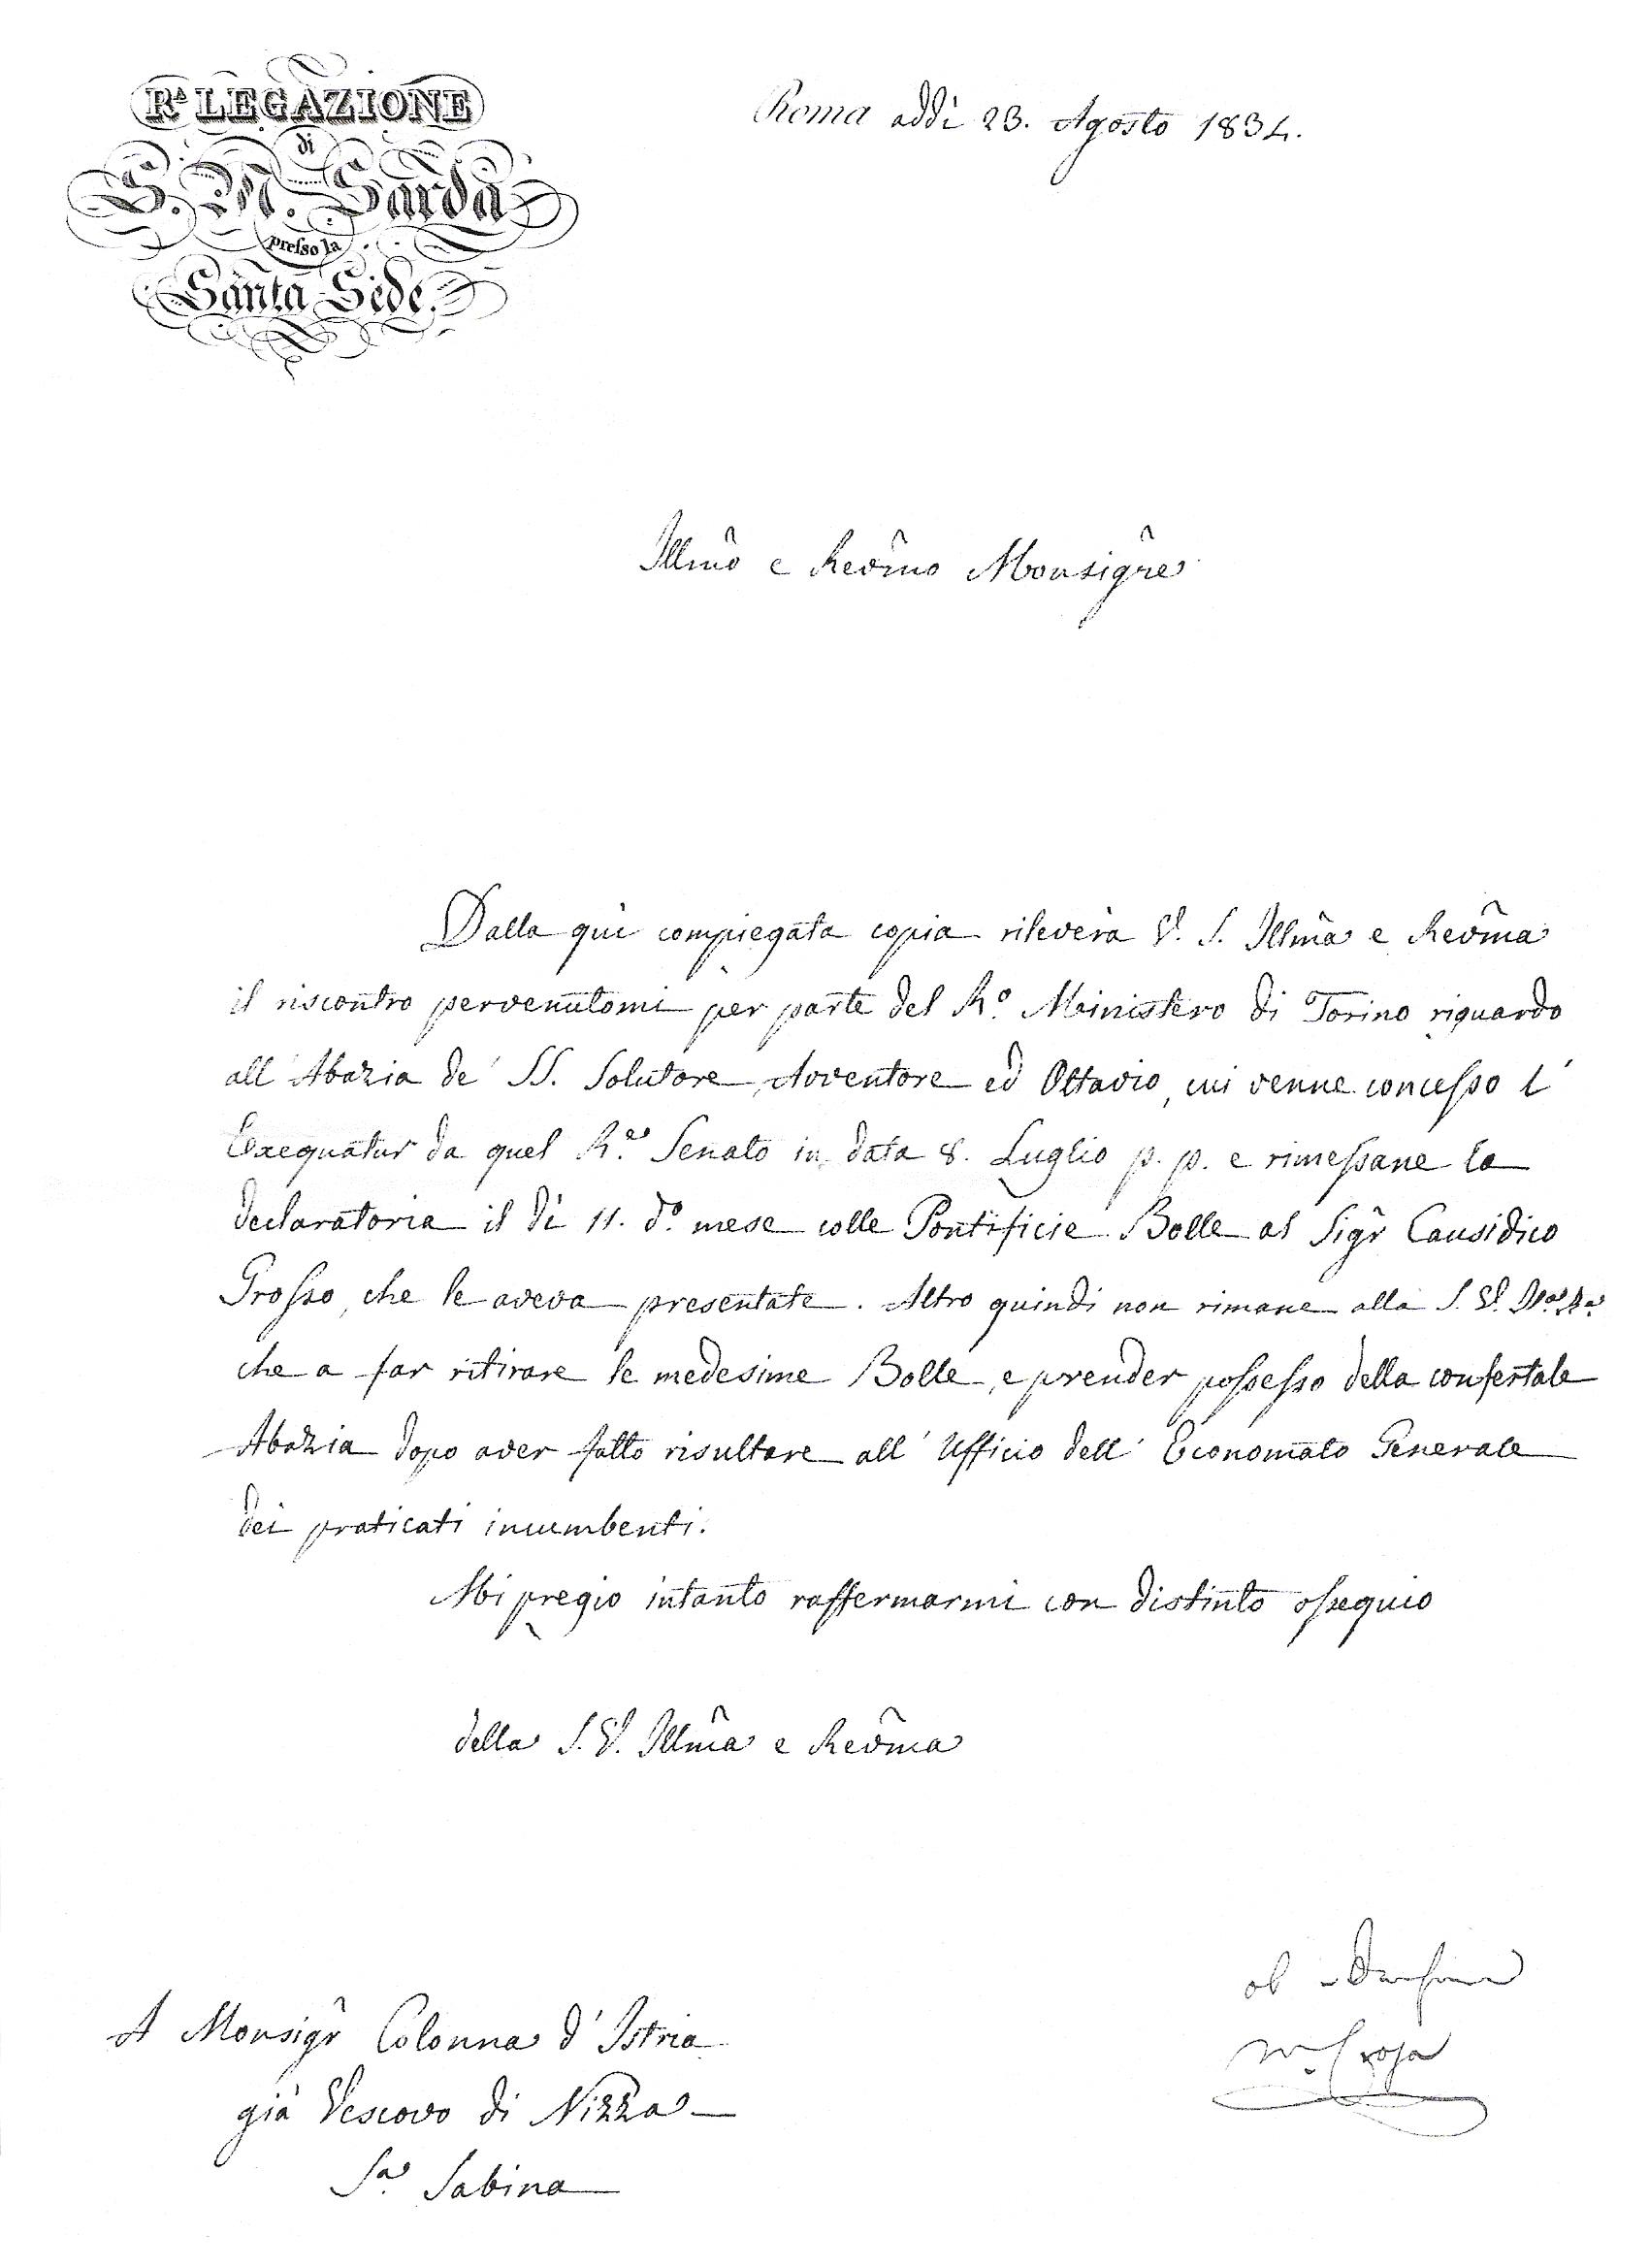 R.ª LEGAZIONE
di
S. M. Sarda
presso la
Santa Sede.
Roma addì 23. Agosto 1834.
Illmo e Revmo Monsigre
Dalla quì compiegata copia rileverà V. S. Illma e Revma
il riscontro pervenutomi per parte del R.º Ministero di Torino riguardo
all' Abazia de' SS. Solutore, Avventore ed Ottavio, cui venne concesso l'
Exequatur da quel R.e Senato in data 8. Luglio p. p. e rimessane la
declaratoria il dì 11. d.º mese colle Pontificie Bolle al Sigr Causidico
Grosso, che le aveva presentate. Altro quindi non rimane alla S. V.
che a far ritirare le medesime Bolle, e prender possesso della confertale
Abazia dopo aver fatto risultare all' Ufficio dell' Economato Generale
dei praticati incumbenti.
Mi pregio intanto raffermarmi con distinto ossequio
della S. V. Illma e Revma
A Monsigr Colonna d' Istria
già Vescovo di Nizza
S.a Sabina
Crosa